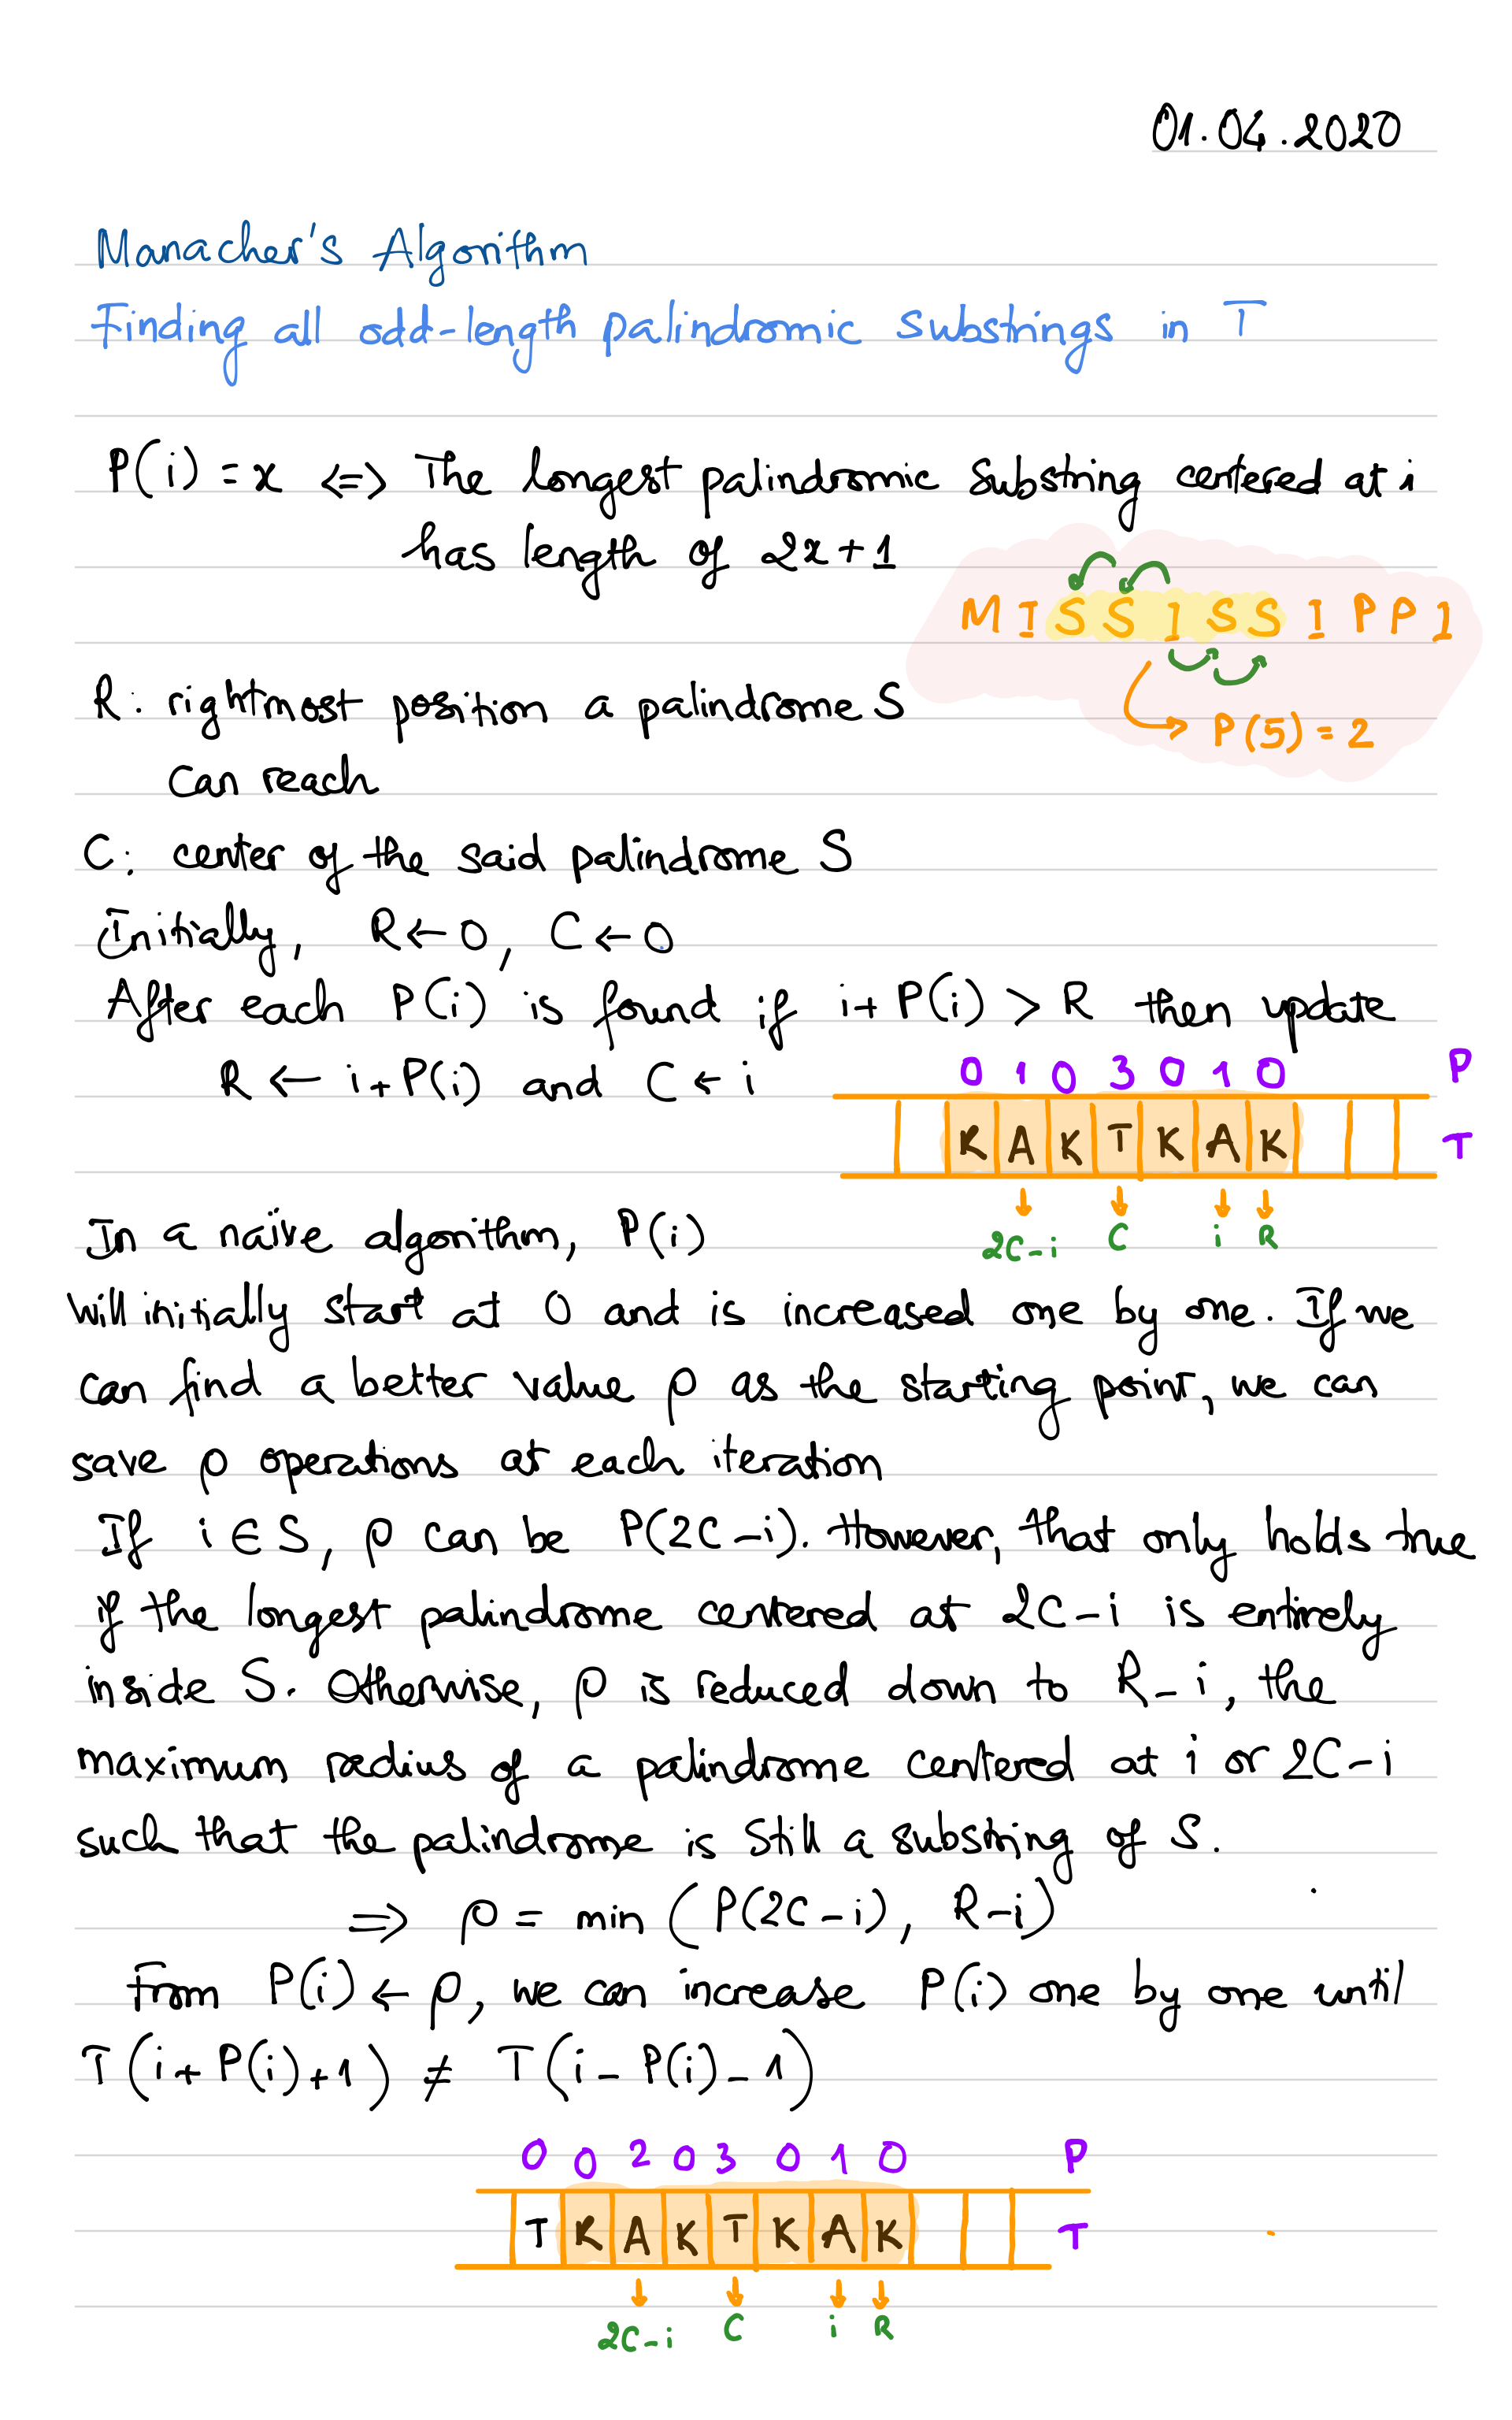 01.04.2020
Manacher's Algorithm
Finding all odd-length palindromic substrings in T
P(i) = x <=> The longest palindromic substring centered at i
has length of 2x+1
M I S S I S S I P P I
P(5) = 2
R: rightmost position a palindrome S
can reach
C: center of the said palindrome S
Initially, R ← 0, C ← 0
After each P(i) is found if i + P(i) > R then update
R ← i + P(i) and C ← i
0 1 0 3 0 1 0 P
K A K T K A K T
2C-i C i R
In a naïve algorithm, P(i)
will initially start at 0 and is increased one by one. If we
can find a better value ρ as the starting point, we can
save ρ operations at each iteration
If i ∈ S, ρ can be P(2C-i). However, that only holds true
if the longest palindrome centered at 2C-i is entirely
inside S. Otherwise, ρ is reduced down to R-i, the
maximum radius of a palindrome centered at i or 2C-i
such that the palindrome is still a substring of S.
⇒ ρ = min (P(2C-i), R-i)
From P(i) ← ρ, we can increase P(i) one by one until
T(i + P(i) + 1) ≠ T(i - P(i) - 1)
0 0 2 0 3 0 1 0 P
T K A K T K A K T
2C-i C i R